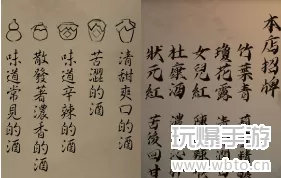 清甜爽口的酒
苦澀的酒
味道辛辣的酒
散發著濃香的酒
味道常見的酒
本店招牌
竹葉青
瓊花露
女兒紅
杜康酒
狀元紅 苦後回甘
玩爆手游
www.wbto.cn